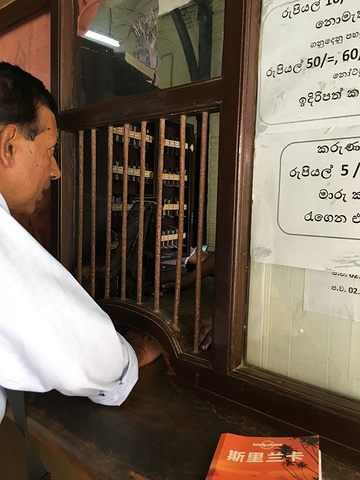 රුපියල් 10
නොමැති
ගනුදෙනු
රුපියල් 50/=, 60/
ඉදිරිපත් ක
කරුණා
රුපියල් 5 /
මාරු ක
රැගෙන එ
ප.ව. 02.
ප.ව. 02.
lonely planet
斯里兰卡